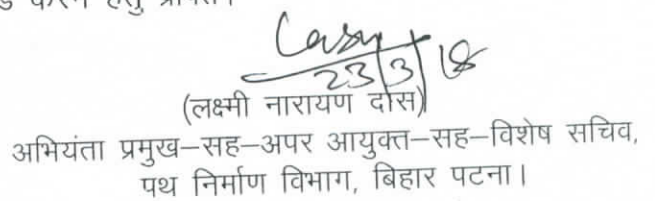 करने हेतु
23/3/18
(लक्ष्मी नारायण दास)
अभियंता प्रमुख–सह–अपर आयुक्त–सह–विशेष सचिव,
पथ निर्माण विभाग, बिहार पटना।